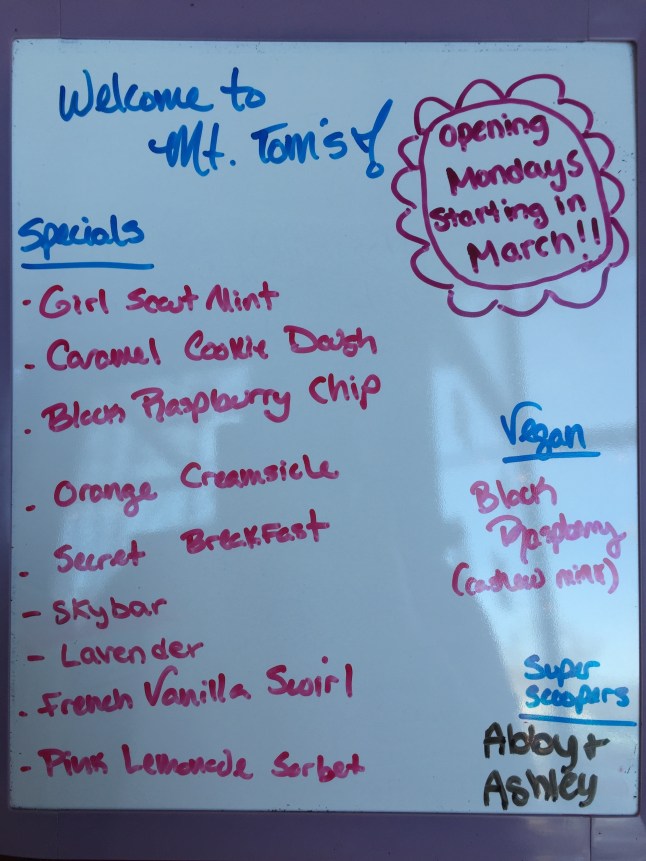 Welcome to
Mt. Tom's!
Opening
Mondays
Starting in
March!!
Specials
· Girl Scout Mint
· Caramel Cookie Dough
· Black Raspburry Chip
· Orange Creamsicle
· Secret Breakfast
- Skybar
- Lavender
· French Vanilla Swirl
· Pink Lemonade Sorbet
Vegan
Black
Raspberry
(cashew milk)
Super
Scoopers
Abby +
Ashley